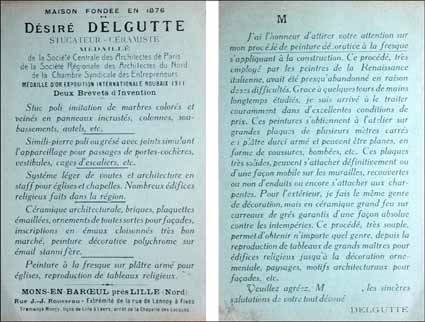 MAISON FONDÉE EN 1876
DÉSIRÉ DELGUTTE
STUCATEUR-CÉRAMISTE
MÉDAILLÉ
de la Société Centrale des Architectes de Paris
de la Société Régionale des Architectes du Nord
de la Chambre Syndicale des Entrepreneurs
MÉDAILLE D'OR EXPOSITION INTERNATIONALE ROUBAIX 1911
Deux Brevets d'Invention
Stuc poli imitation de marbres colorés et
veinés en panneaux incrustés, colonnes, sou-
bassements, autels, etc.
Simili-pierre poli ou grésé avec joints simulant
l'appareillage pour passages de portes-cochères,
vestibules, cages d'escaliers, etc.
Système léger de voûtes et architecture en
staff pour églises et chapelles. Nombreux édifices
religieux faits dans la région.
Céramique architecturale, briques, plaquettes
émaillées, ornements de toutes sortes pour façades,
inscriptions en émaux cloisonnés très bon
marché, peinture décorative polychrome sur
émail stannifère.
Peinture à la fresque sur plâtre armé pour
églises, reproduction de tableaux religieux.
MONS-EN-BARŒUL près LILLE (Nord)
Rue J.-J. Rousseau - Extrémité de la rue de Lannoy à Fives
Tramways Mongy, ligne de Lille à Leers, arrêt de la Chapelle des Lacques
M
J'ai l'honneur d'attirer votre attention sur
mon procédé de peinture décorative à la fresque
s'appliquant à la construction. Ce procédé, très
employé par les peintres de la Renaissance
italienne, avait été presqu'abandonné en raison
de ses difficultés. Grâce à quelques tours de mains
longtemps étudiés, je suis arrivé à le traiter
couramment dans d'excellentes conditions de
prix. Ces peintures s'obtiennent à l'atelier sur
grandes plaques de plusieurs mètres carrés
en plâtre durci armé et peuvent être planes, en
forme de voussures, bombées, etc. Ces plaques
très solides, peuvent s'attacher définitivement ou
d'une façon mobile sur les murailles, recouvertes
ou non d'enduits ou encore s'attacher aux char-
pentes. Pour l'extérieur, je fais le même genre
de décoration, mais en céramique grand feu sur
carreaux de grés garantis d'une façon absolue
contre les intempéries. Ce procédé, très souple,
permet d'obtenir n'importe quel genre, depuis la
reproduction de tableaux de grands maîtres pour
édifices religieux jusqu'à la décoration orne-
mentale, paysages, motifs architecturaux pour
façades, etc.
Veuillez agréez, M , les sincères
salutations de votre tout dévoué
DELGUTTE